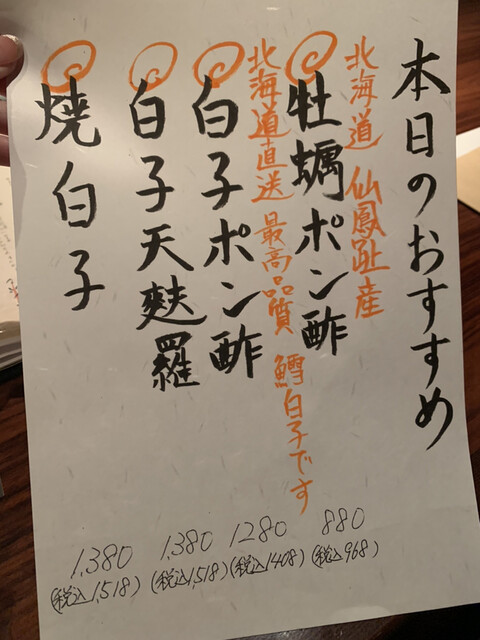 本日のおすすめ
北海道 仙鳳趾産
牡蠣ポン酢
880
(税込968)
北海道直送 最高品質 鱈白子です
白子ポン酢
1280
(税込1408)
白子天麩羅
1,380
(税込1,518)
焼白子
1,380
(税込1,518)